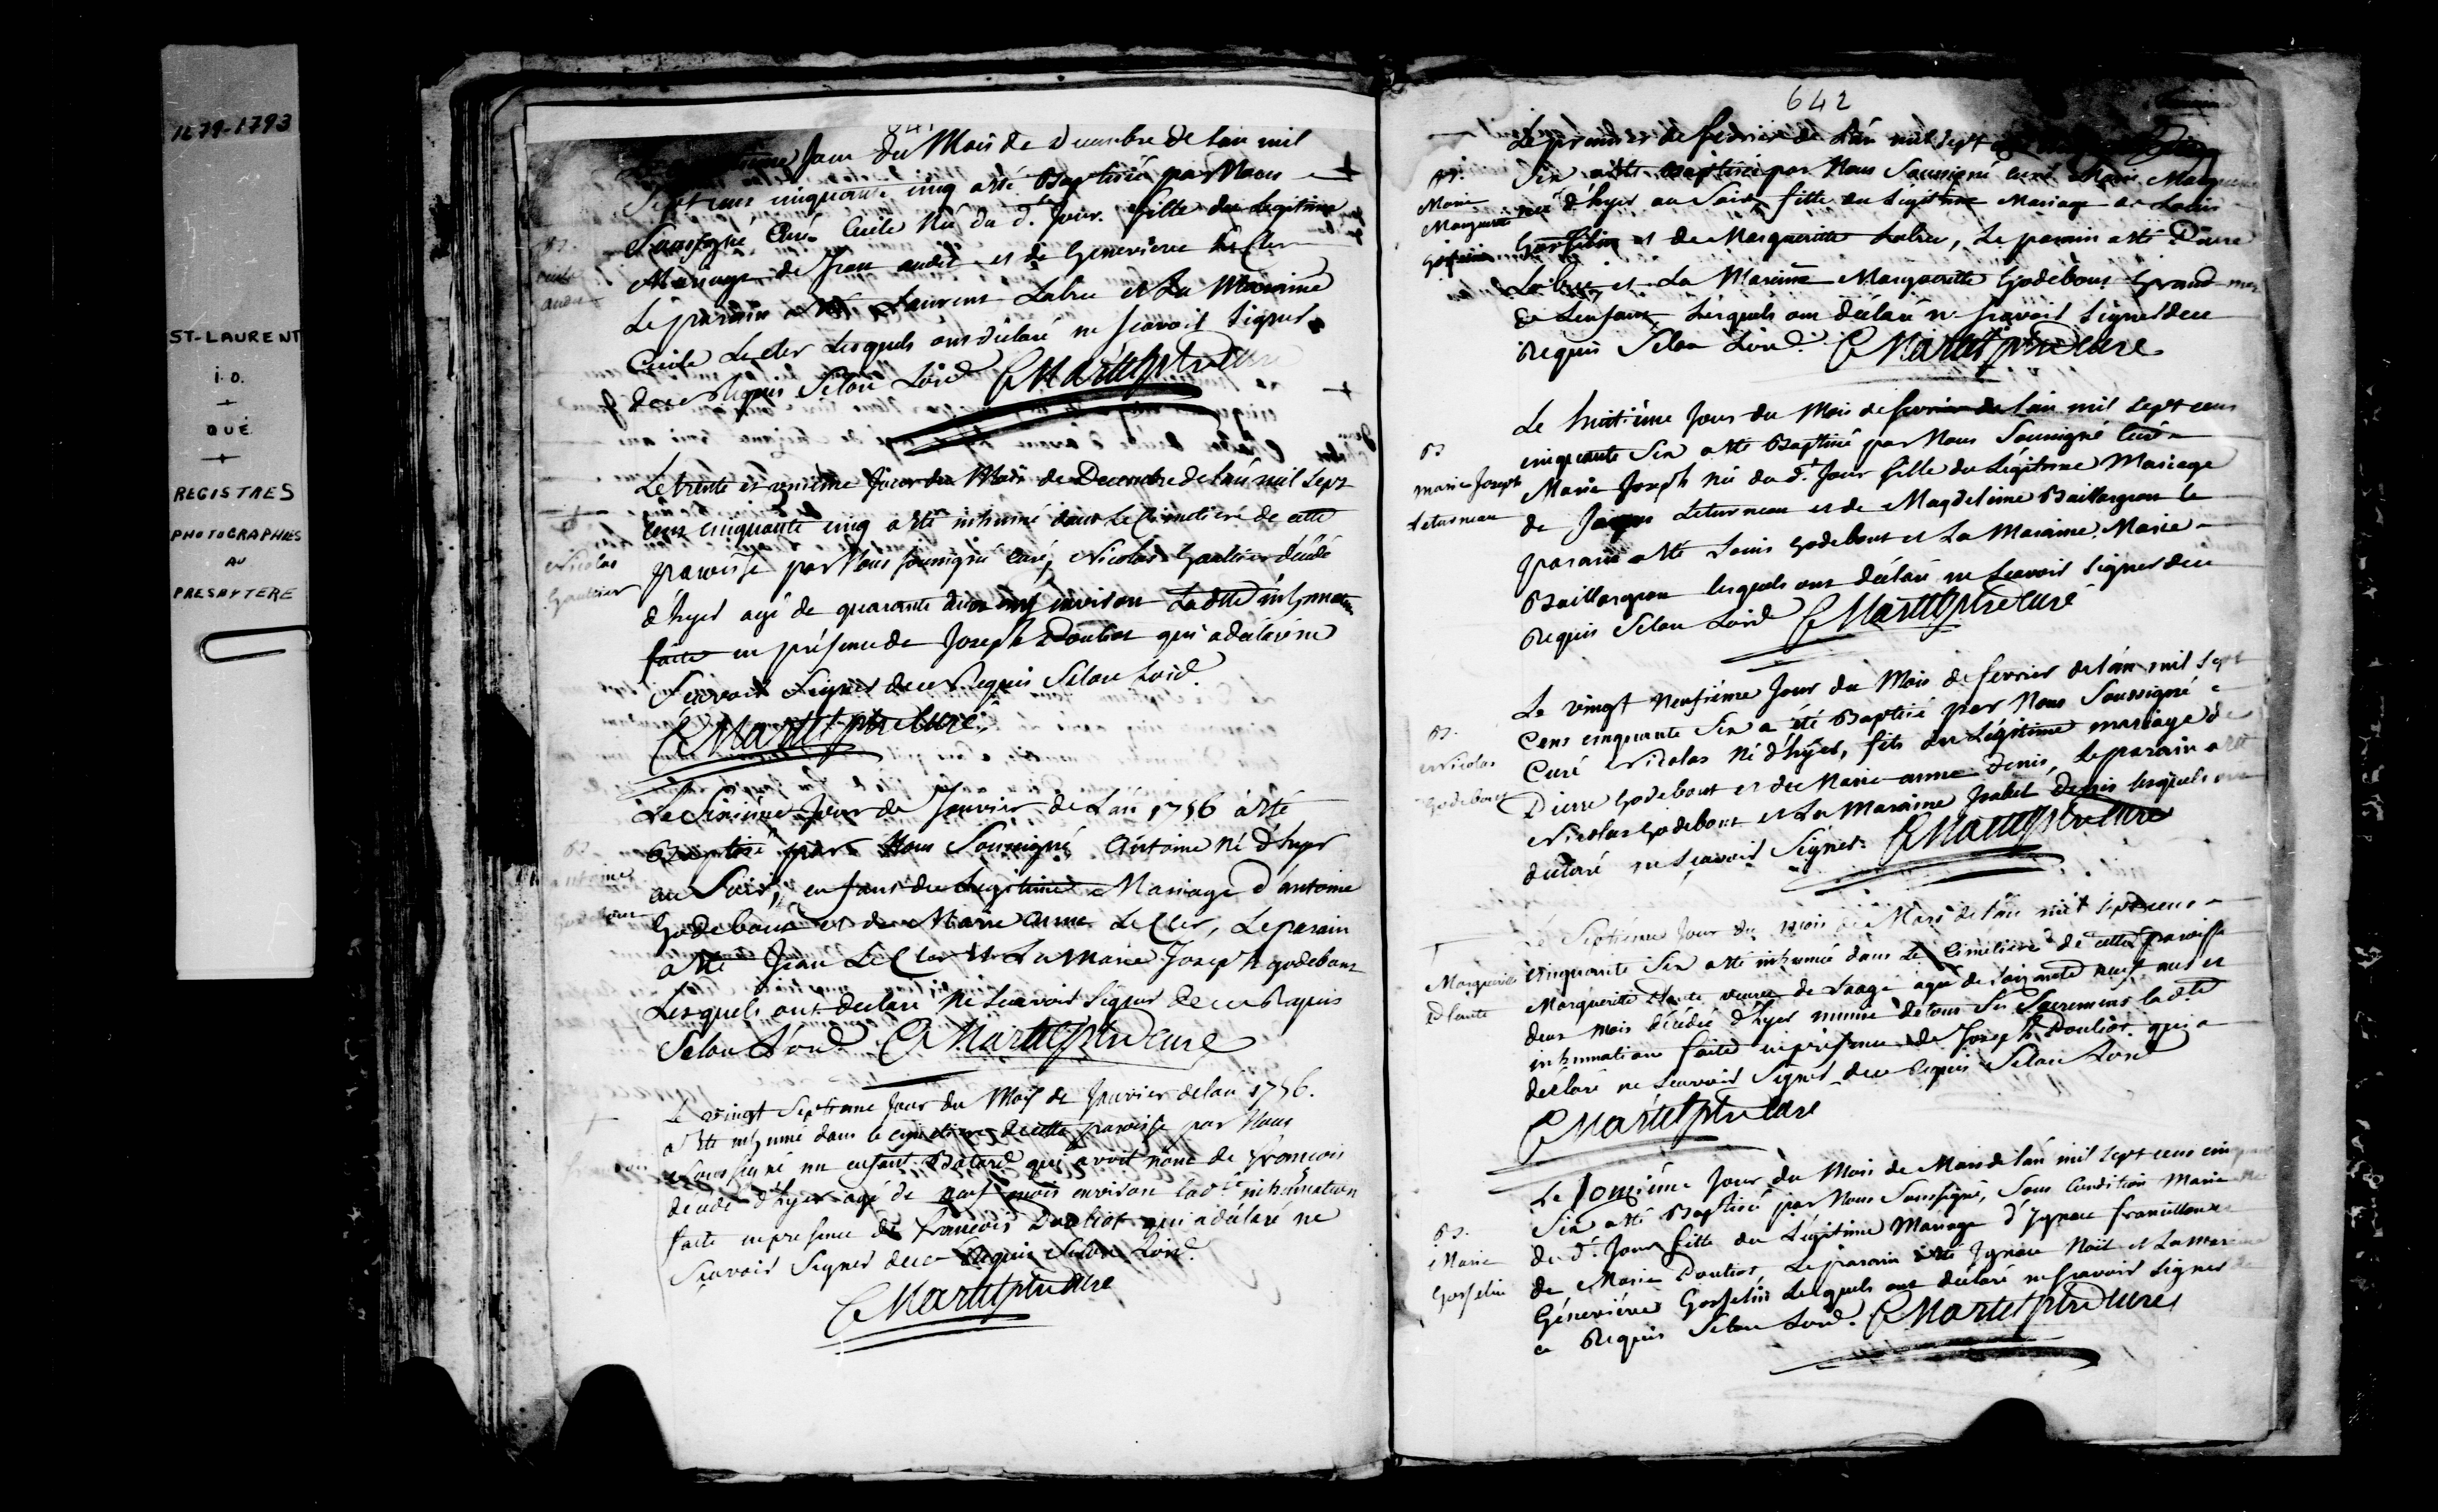 1679-1793
ST-LAURENT
i.o.
+
QUÉ
+
REGISTRES
PHOTOGRAPHIÉS
AU
PRESBYTERE
641
Jour du Mois de Decembre de l'an mil
Sept cens cinquante cinq a été Baptisée par Nous
Soussigné Curé Cecile Née du d. Jour. fille du Legitime
Mariage de Jean audet et de Genevieve LeCler
Le parain a été Laurent Labrie et La Maraine
Cecile LeCler Lesquels ont déclaré ne scavoir signer
de ce Requis Selon L'ord. CMartel ptre Curé
B.
Cecile
audet
Le trente et unième Jour du Mois de Decembre de l'an mil Sept
cens cinquante cinq a été inhumé dans Le Cimetiere de cette
paroisse par Nous soussigné Curé, Nicolas Gautier décédé
d'hyer agé de quarante deux ans environ Ladtte inhumation
faite en présence de Joseph Pouliot qui a déclaré ne
Scavoir Signer de ce Requis Selon L'ord.
CMartel ptre Curé
+
Nicolas
Gautier
Le Sixième Jour de Janvier de L'an 1756 à été
Baptisé par Nous Soussigné Antoine né d'hyer
au Soir, enfant du Legitime Mariage d'antoine
Godebout et de Marie Anne LeCler, Le parain
a été Jean LeCler et La Marie Joseph godebout
Lesquels ont declaré Ne Scavoir Signer de ce Requis
Selon L'ord CMartel ptre Curé
B.
antoine
Godebout
Le vingt Septieme Jour du Mois de Janvier de l'an 1756.
a été inhumé dans le cimetiere de cette paroisse par Nous
Soussigné un enfant Batard qui avoit nom de francois
décédé d'hyer agé de neuf mois environ lad.te inhumation
faite en presence de francois Pouliot qui a déclaré ne
Scavoir Signer de ce Requis Selon L'ord.
CMartel ptre Curé
+
francois
642
Le premier de fevrier de L'an mil sept
Six a été Baptisée par Nous Soussigné curé Marie Marguerite
née d'hyer au Soir, fille du Légitime Mariage de Louis
Gosselin et de Marguerite Labrie, Le parain a été Pierre
Labrie, et La Maraine Marguerite Godebout Grand mer
de L'enfant Lesquels ont déclaré ne scavoir signer de ce
Requis Selon L'ord. CMartel ptre Curé
B.
Marie
Marguerite
Gosselin
Le huitième Jour du Mois de fevrier de l'an mil sept cens
cinquante Six a été Baptisée par Nous Soussigné Curé
Marie Joseph née du d. Jour fille du Légitime Mariage
de Jacques Leturneau et de Magdeleine Baillargeon le
parain a été Louis Godebout et La Maraine Marie
Baillargeon lesquels ont déclaré ne Scavoir Signer de ce
Requis Selon L'ord CMartel ptre Curé
B
Marie Joseph
Leturneau
Le vingt Neufième Jour du Mois de fevrier de l'an mil Sept
Cens cinquante Six a été Baptisé par Nous Soussigné
Curé Nicolas Né d'hyer, fils du Légitime mariage de
Pierre Godebout et de Marie anne Denis, Le parain a été
Nicolas Godebout et La Maraine Isabel Denis lesquels ont
déclaré ne Scavoir Signer. CMartel ptre Curé
B.
Nicolas
Godebout
Le Septieme Jour du Mois de Mars de l'an mil Sept cens
Cinquante Six a été inhumée dans Le Cimetiere de cette paroisse
Marguerite Plante veuve de Lâagé agée de soixante neuf ans et
deux mois décédée d'hyer munie de tous Ses Sacremens lad.te
inhumation faite en présence de Joseph Pouliot qui a
declaré ne Scavoir Signer de ce Requis Selon L'ord
CMartel ptre Curé
Marguerite
Plante
Le Jour du Mois de Mars de l'an mil sept cens cinquante
Six a été Baptisée par Nous Soussigné, Sous Condition Marie Née
du d. Jour fille du Légitime Mariage d'Ignace
de Marie Pouliot Le parain a été Ignace Noël et La maraine
Génevieve Gosselin Lesquels ont déclaré ne scavoir signer de
ce Requis Selon L'ord. CMartel ptre Curé
B.
Marie
Gosselin